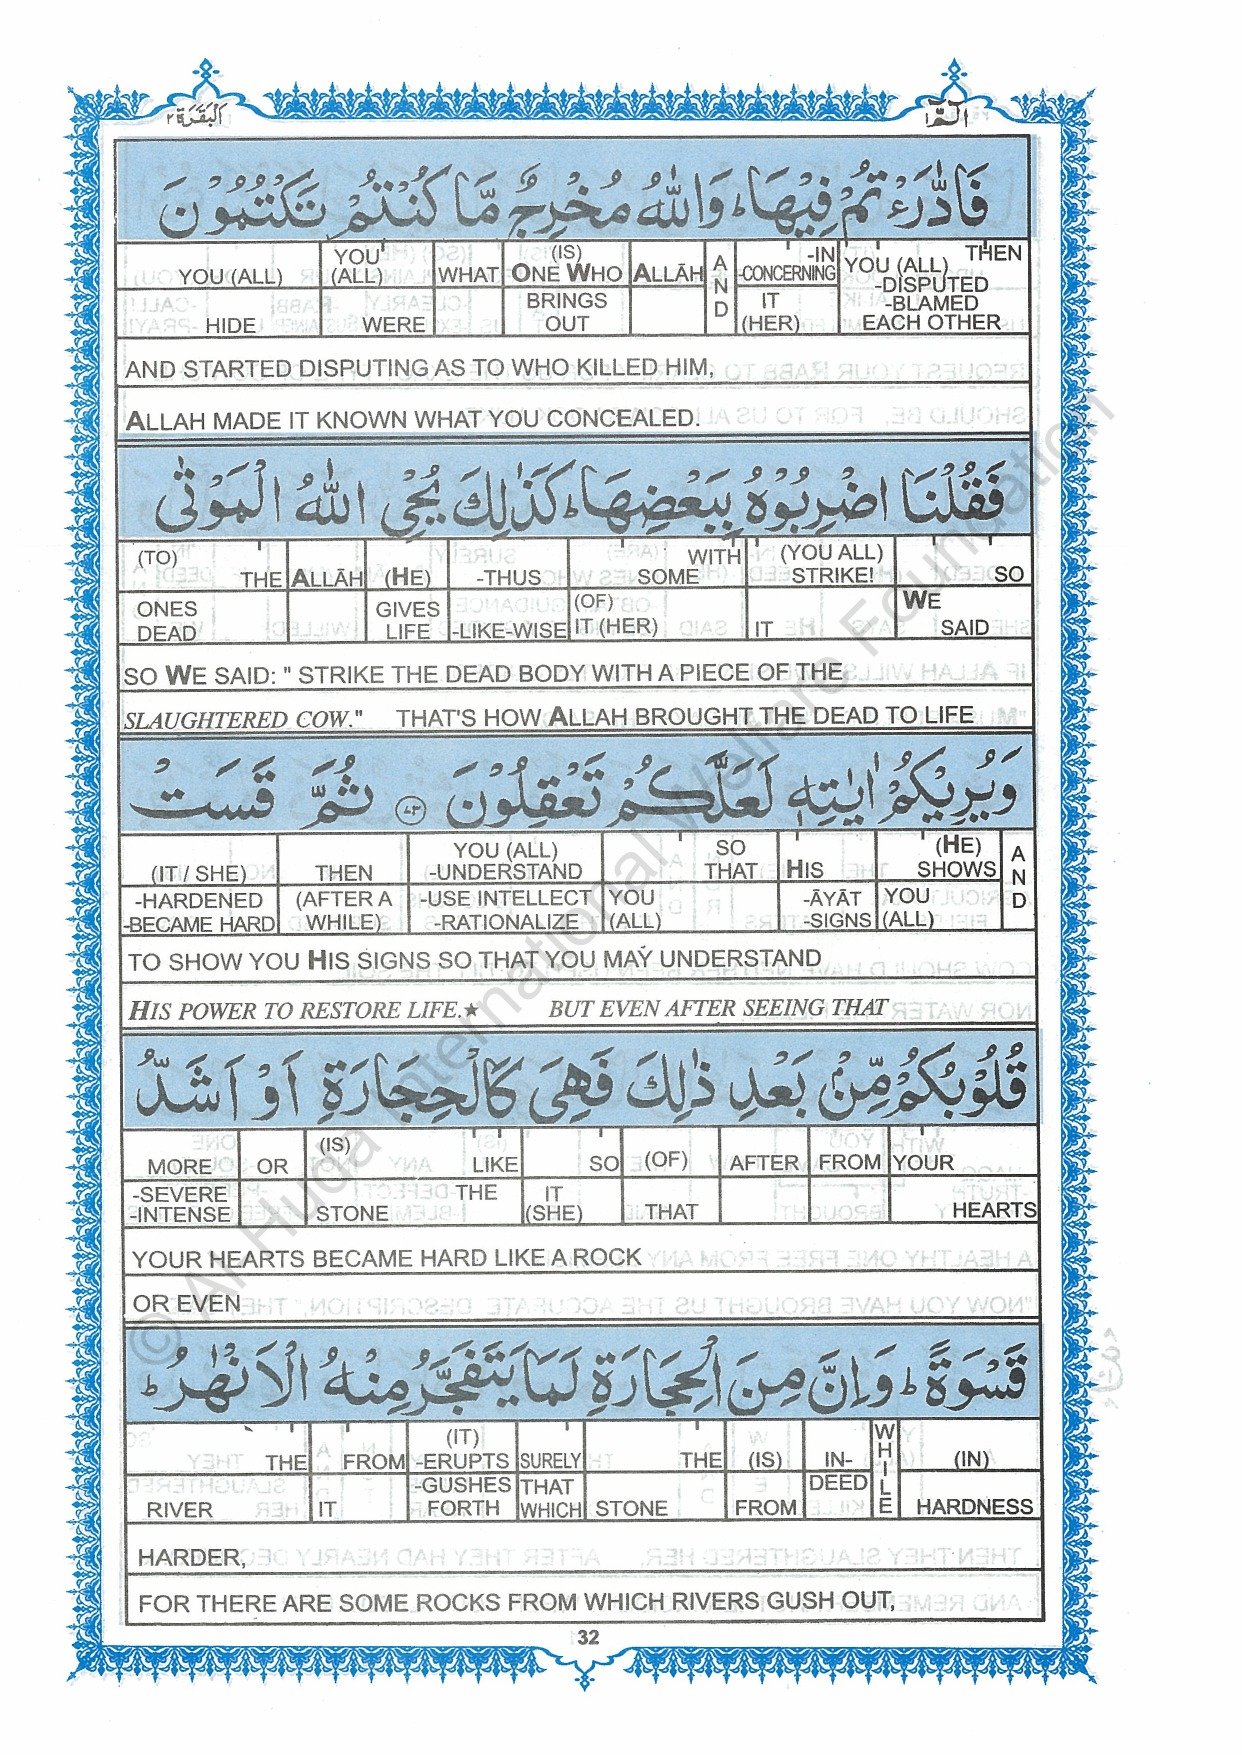 البقرة ٢
الٓمّٓ ١
فَادّٰرَءۡتُمۡ فِيۡهَا ؕ وَاللّٰهُ مُخۡرِجٌ مَّا كُنۡتُمۡ تَكۡتُمُوۡنَ
YOU (ALL) HIDE
YOU (ALL) WERE
WHAT
(IS) ONE WHO BRINGS OUT
ALLĀH
AND
-IN -CONCERNING IT (HER)
THEN YOU (ALL) -DISPUTED -BLAMED EACH OTHER
AND STARTED DISPUTING AS TO WHO KILLED HIM,
ALLAH MADE IT KNOWN WHAT YOU CONCEALED.
فَقُلۡنَا اضۡرِبُوۡهُ بِبَعۡضِهَا ؕ كَذٰلِكَ يُحۡىِ اللّٰهُ الۡمَوۡتٰى
(TO) THE ONES DEAD
ALLĀH
(HE) GIVES LIFE
-THUS -LIKE-WISE
WITH SOME (OF) IT (HER)
(YOU ALL) STRIKE! IT
SO WE SAID
SO WE SAID: " STRIKE THE DEAD BODY WITH A PIECE OF THE
SLAUGHTERED COW." THAT'S HOW ALLAH BROUGHT THE DEAD TO LIFE
وَيُرِيۡكُمۡ اٰيٰتِهٖ لَعَلَّكُمۡ تَعۡقِلُوۡنَ ‏﴿۷۳﴾‏ ثُمَّ قَسَتۡ
(IT / SHE) -HARDENED -BECAME HARD
THEN (AFTER A WHILE)
YOU (ALL) -UNDERSTAND -USE INTELLECT -RATIONALIZE
SO THAT YOU (ALL)
HIS -ĀYĀT -SIGNS
(HE) SHOWS YOU (ALL)
AND
TO SHOW YOU HIS SIGNS SO THAT YOU MAY UNDERSTAND
HIS POWER TO RESTORE LIFE.★ BUT EVEN AFTER SEEING THAT
قُلُوۡبُكُمۡ مِّنۡۢ بَعۡدِ ذٰلِكَ فَهِىَ كَالۡحِجَارَةِ اَوۡ اَشَدُّ
MORE -SEVERE -INTENSE
OR
(IS) LIKE THE STONE
SO IT (SHE)
(OF) THAT
AFTER
FROM
YOUR HEARTS
YOUR HEARTS BECAME HARD LIKE A ROCK
OR EVEN
قَسۡوَةً ؕ وَاِنَّ مِنَ الۡحِجَارَةِ لَمَا يَتَفَجَّرُ مِنۡهُ الۡاَنۡهٰرُ ؕ
THE RIVER
FROM IT
(IT) -ERUPTS -GUSHES FORTH
SURELY THAT WHICH
THE STONE
(IS) FROM
IN-DEED
WHILE
(IN) HARDNESS
HARDER,
FOR THERE ARE SOME ROCKS FROM WHICH RIVERS GUSH OUT,
32
© Al Huda International Welfare Foundation